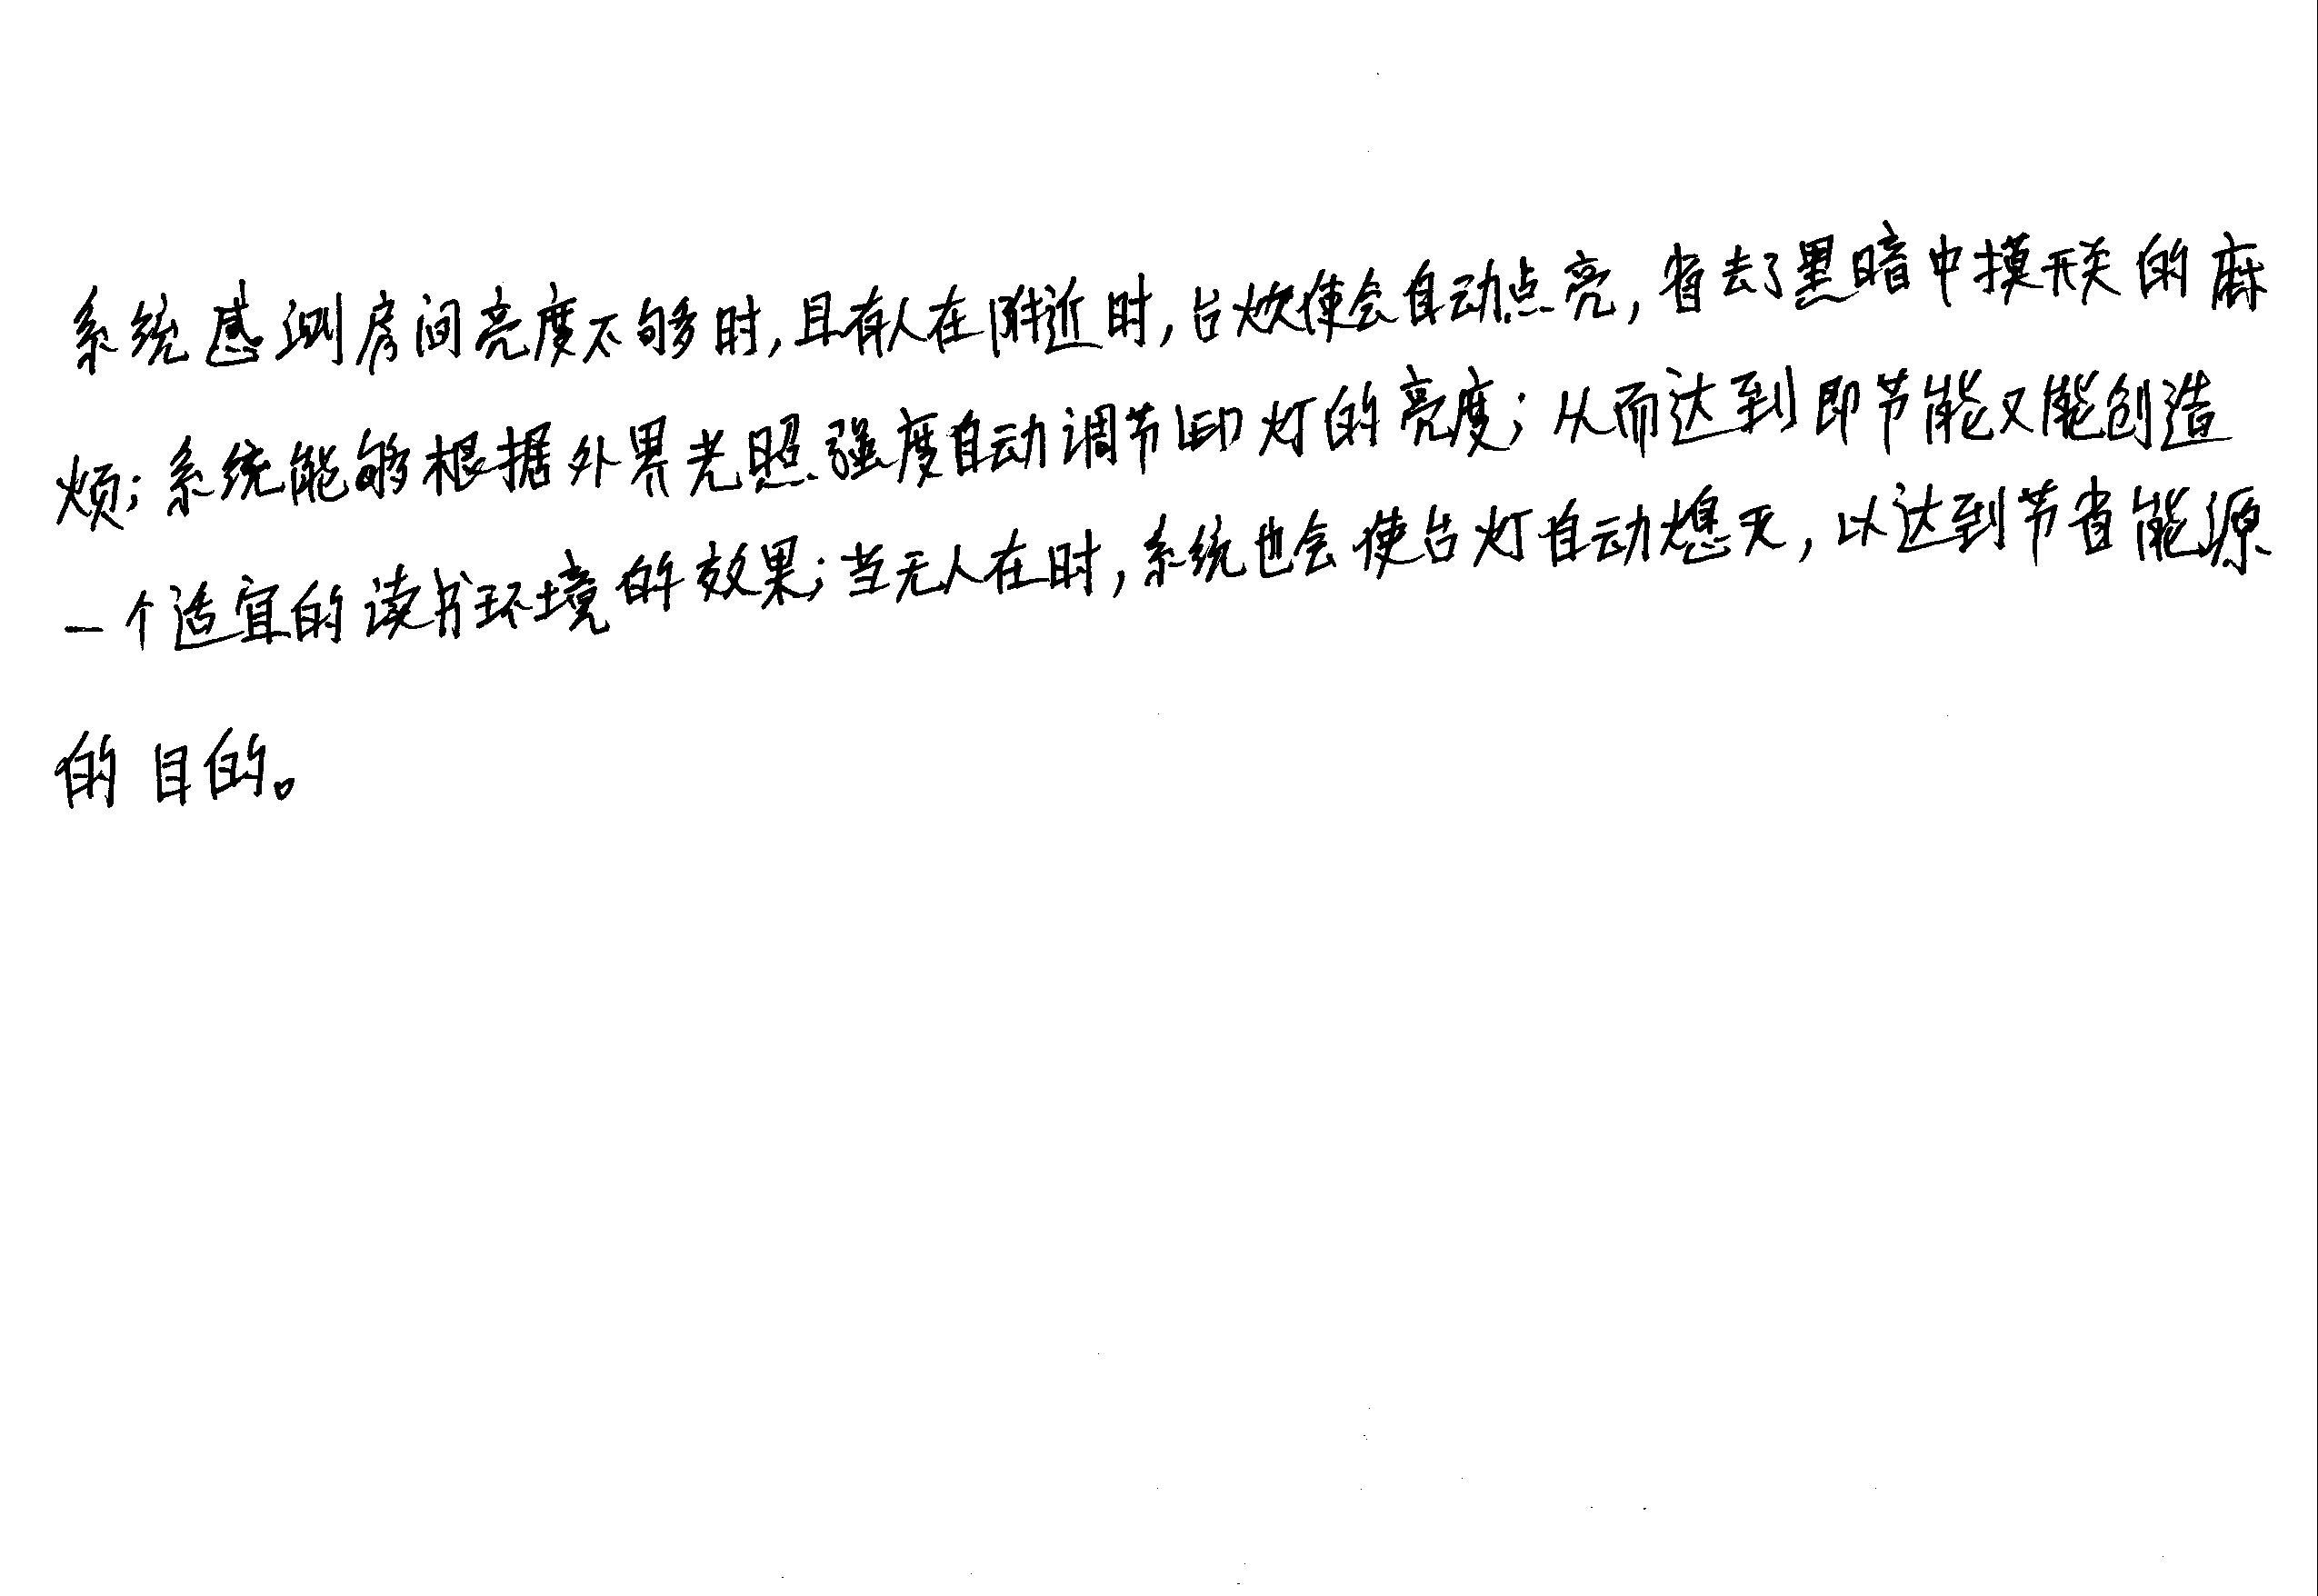 系统感测房间亮度不够时,且有人在附近时,台灯使会自动点亮,省去了黑暗中摸开关的麻
烦;系统能够根据外界光照强度自动调节LED灯的亮度;从而达到即节能又能创造
一个适宜的读书环境的效果;当无人在时,系统也会使台灯自动熄灭,以达到节省能源
的目的。